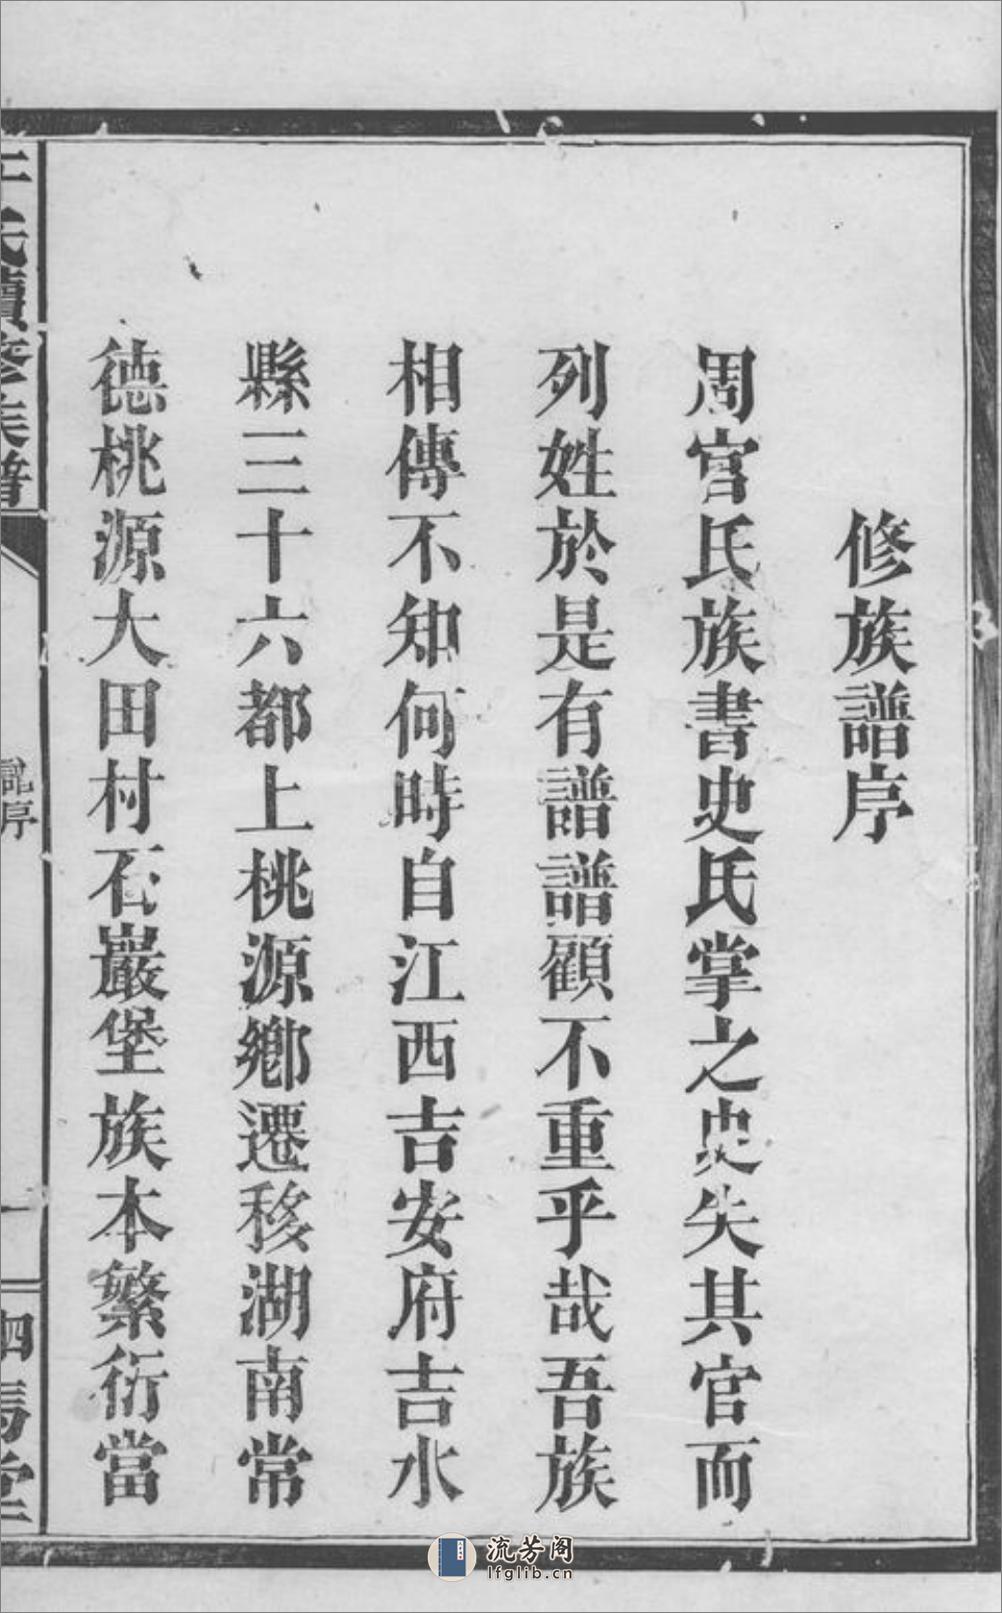 修族譜序
周官氏族書史氏掌之史失其官而
列姓於是有譜譜顧不重乎哉吾族
相傳不知何時自江西吉安府吉水
縣三十六都上桃源鄉遷移湖南常
德桃源大田村石巖堡族本繁衍當
氏續修族譜
序
一
駟馬堂
流芳阁
lfglib.cn